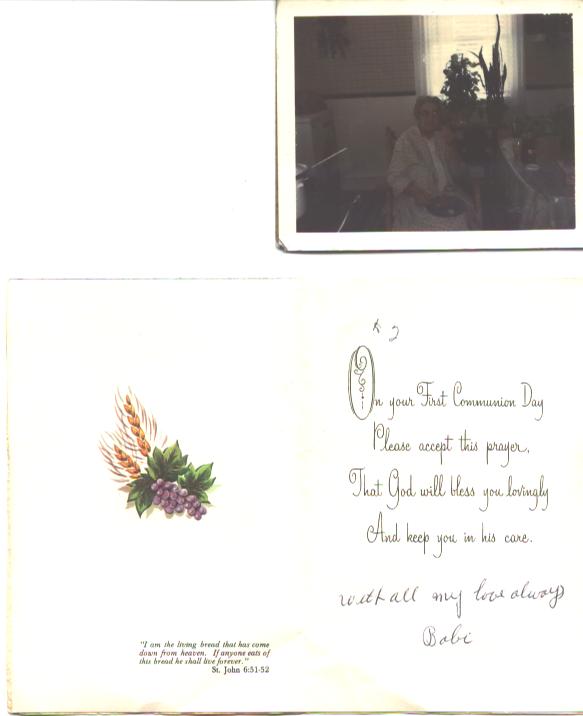 "I am the living bread that has come
down from heaven. If anyone eats of
this bread he shall live forever."
St. John 6:51-52
On your First Communion Day
Please accept this prayer,
That God will bless you lovingly
And keep you in his care.
with all my love always
Babi